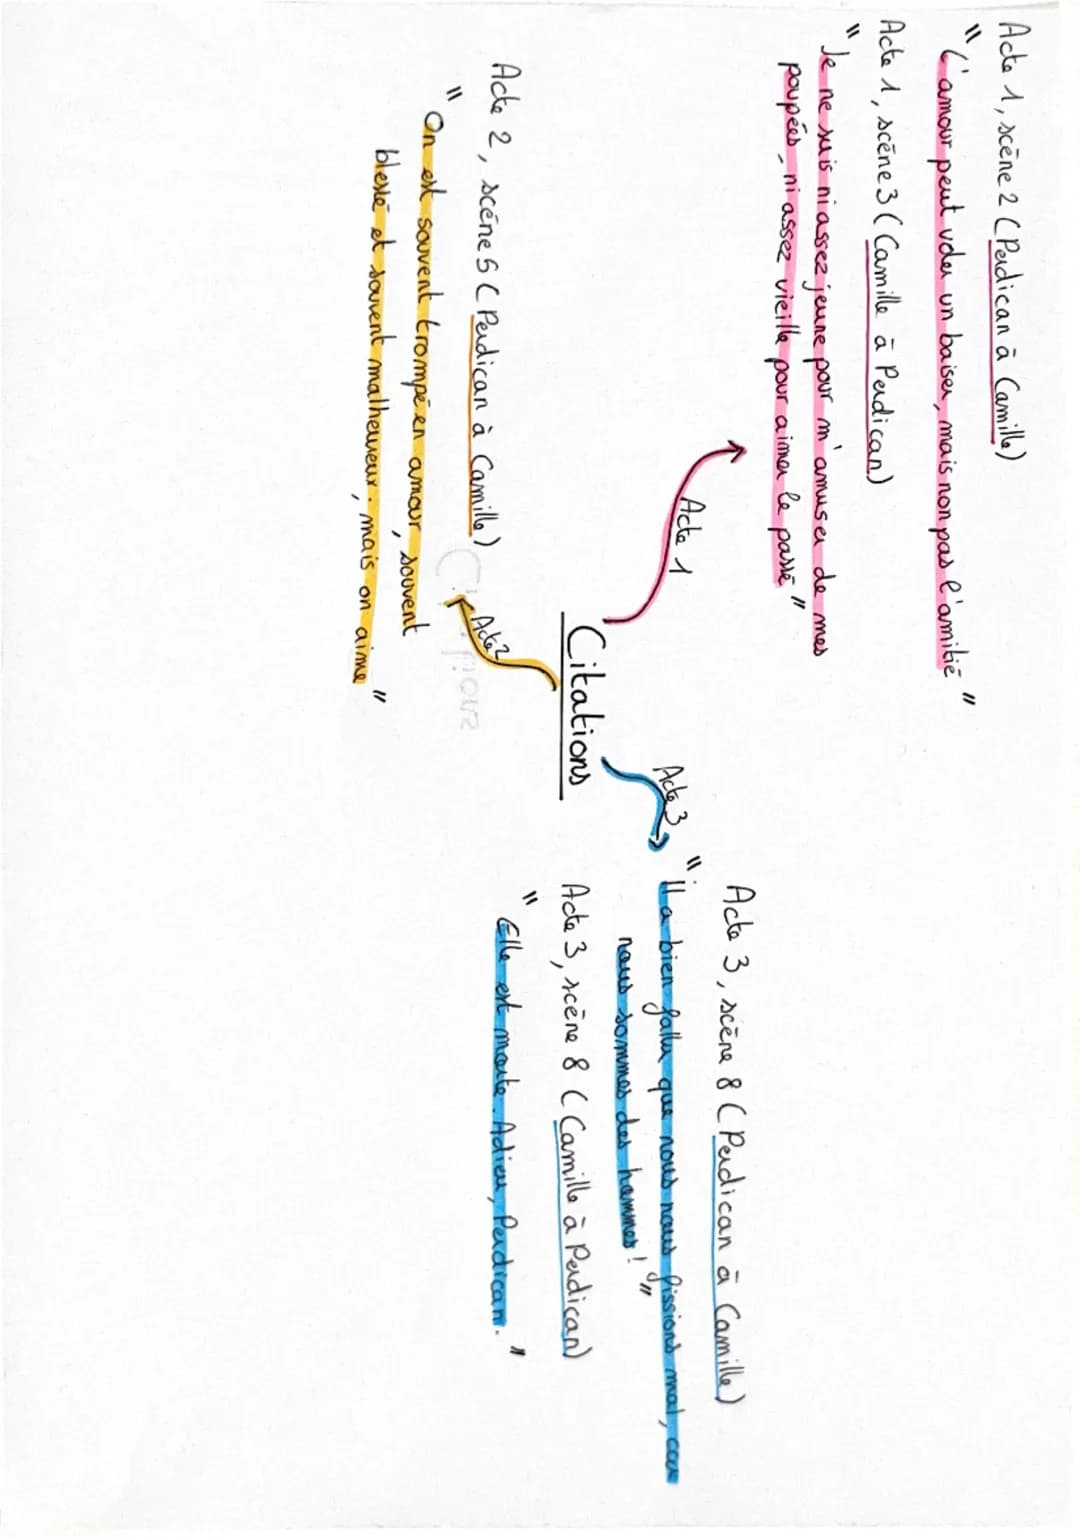 Acte 1, scène 2 (Perdican à Camille)
" L'amour peut voler un baiser, mais non pas l'amitié "
Acte 1, scène 3 (Camille à Perdican)
" Je ne suis ni assez jeune pour m'amuser de mes
poupées, ni assez vieille pour aimer le passé "
Acte 1
Citations
Acte 2
Acte 2, scène 5 (Perdican à Camille)
" On est souvent trompé en amour, souvent
blessé et souvent malheureux ; mais on aime "
Acte 3
Acte 3, scène 8 (Perdican à Camille)
" Il a bien fallu que nous nous fissions mal, car
nous sommes des hommes ! "
Acte 3, scène 8 (Camille à Perdican)
" Elle est morte. Adieu, Perdican. "